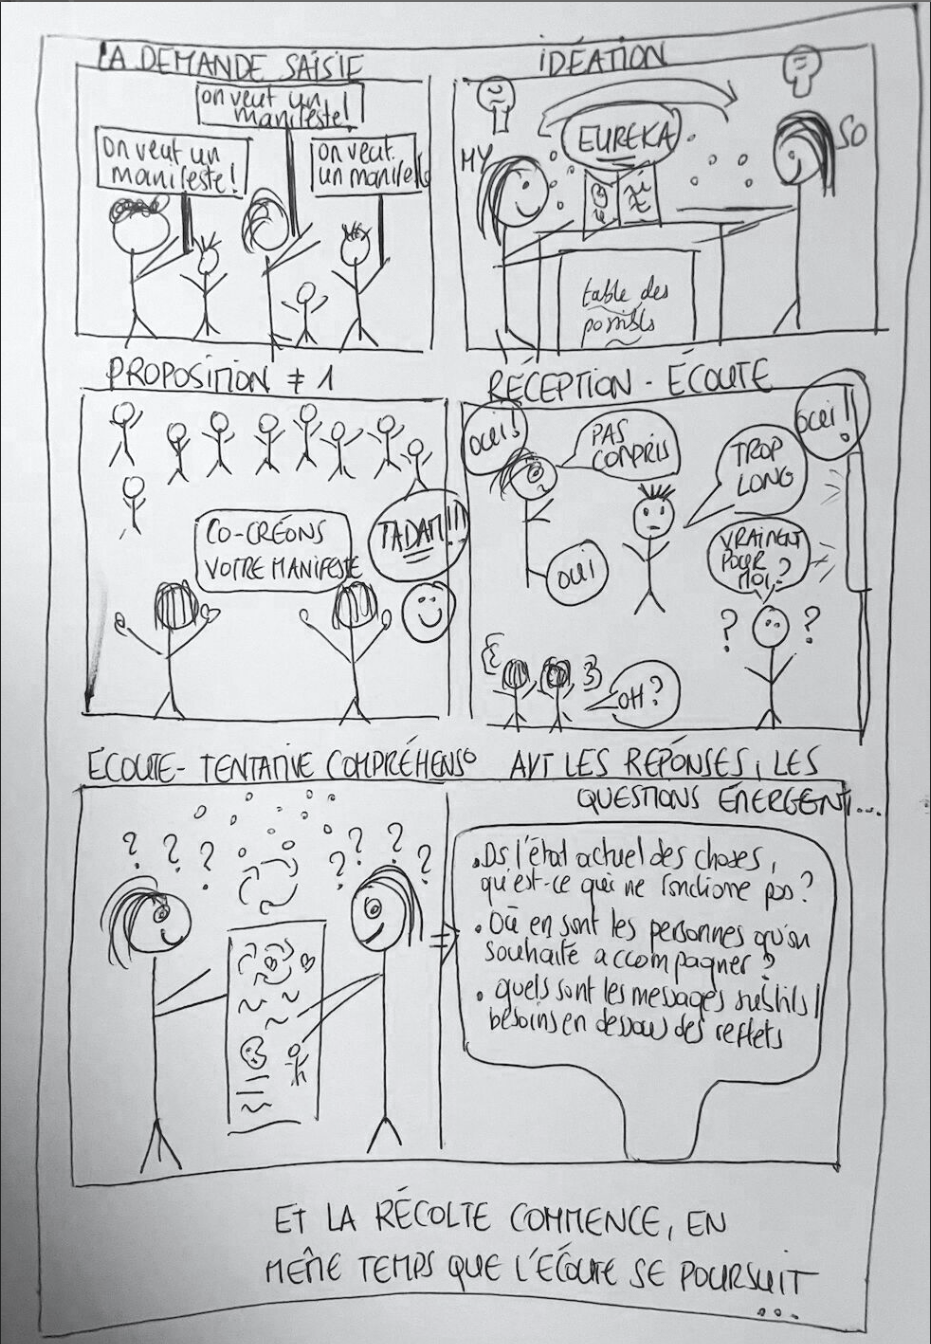 LA DEMANDE SAISIE
on veut un
manifeste!
on veut un
manifeste!
on veut
un manifes
IDÉATION
EUREKA
MY
SO
table des
possibls
PROPOSITION ≠ 1
CO-CRÉONS
VOTRE MANIFESTE
TADAM!!!
RÉCEPTION - ÉCOUTE
OUI!
PAS
COMPRIS
TROP
LONG
OUI!!
OUI
VRAIMENT
POUR
MOI?
? ?
OH?
ÉCOUTE - TENTATIVE COMPRÉHENSO
? ? ? ? ? ?
AVT LES RÉPONSES, LES
QUESTIONS ÉMERGENT...
• Ds l'état actuel des choses,
qu'est-ce qui ne fonctionne pas?
• Où en sont les personnes qu'on
souhaite accompagner?
• quels sont les messages subtils/
besoins en dessous des reflets
ET LA RÉCOLTE COMMENCE, EN
MÊME TEMPS QUE L'ÉCOUTE SE POURSUIT
...